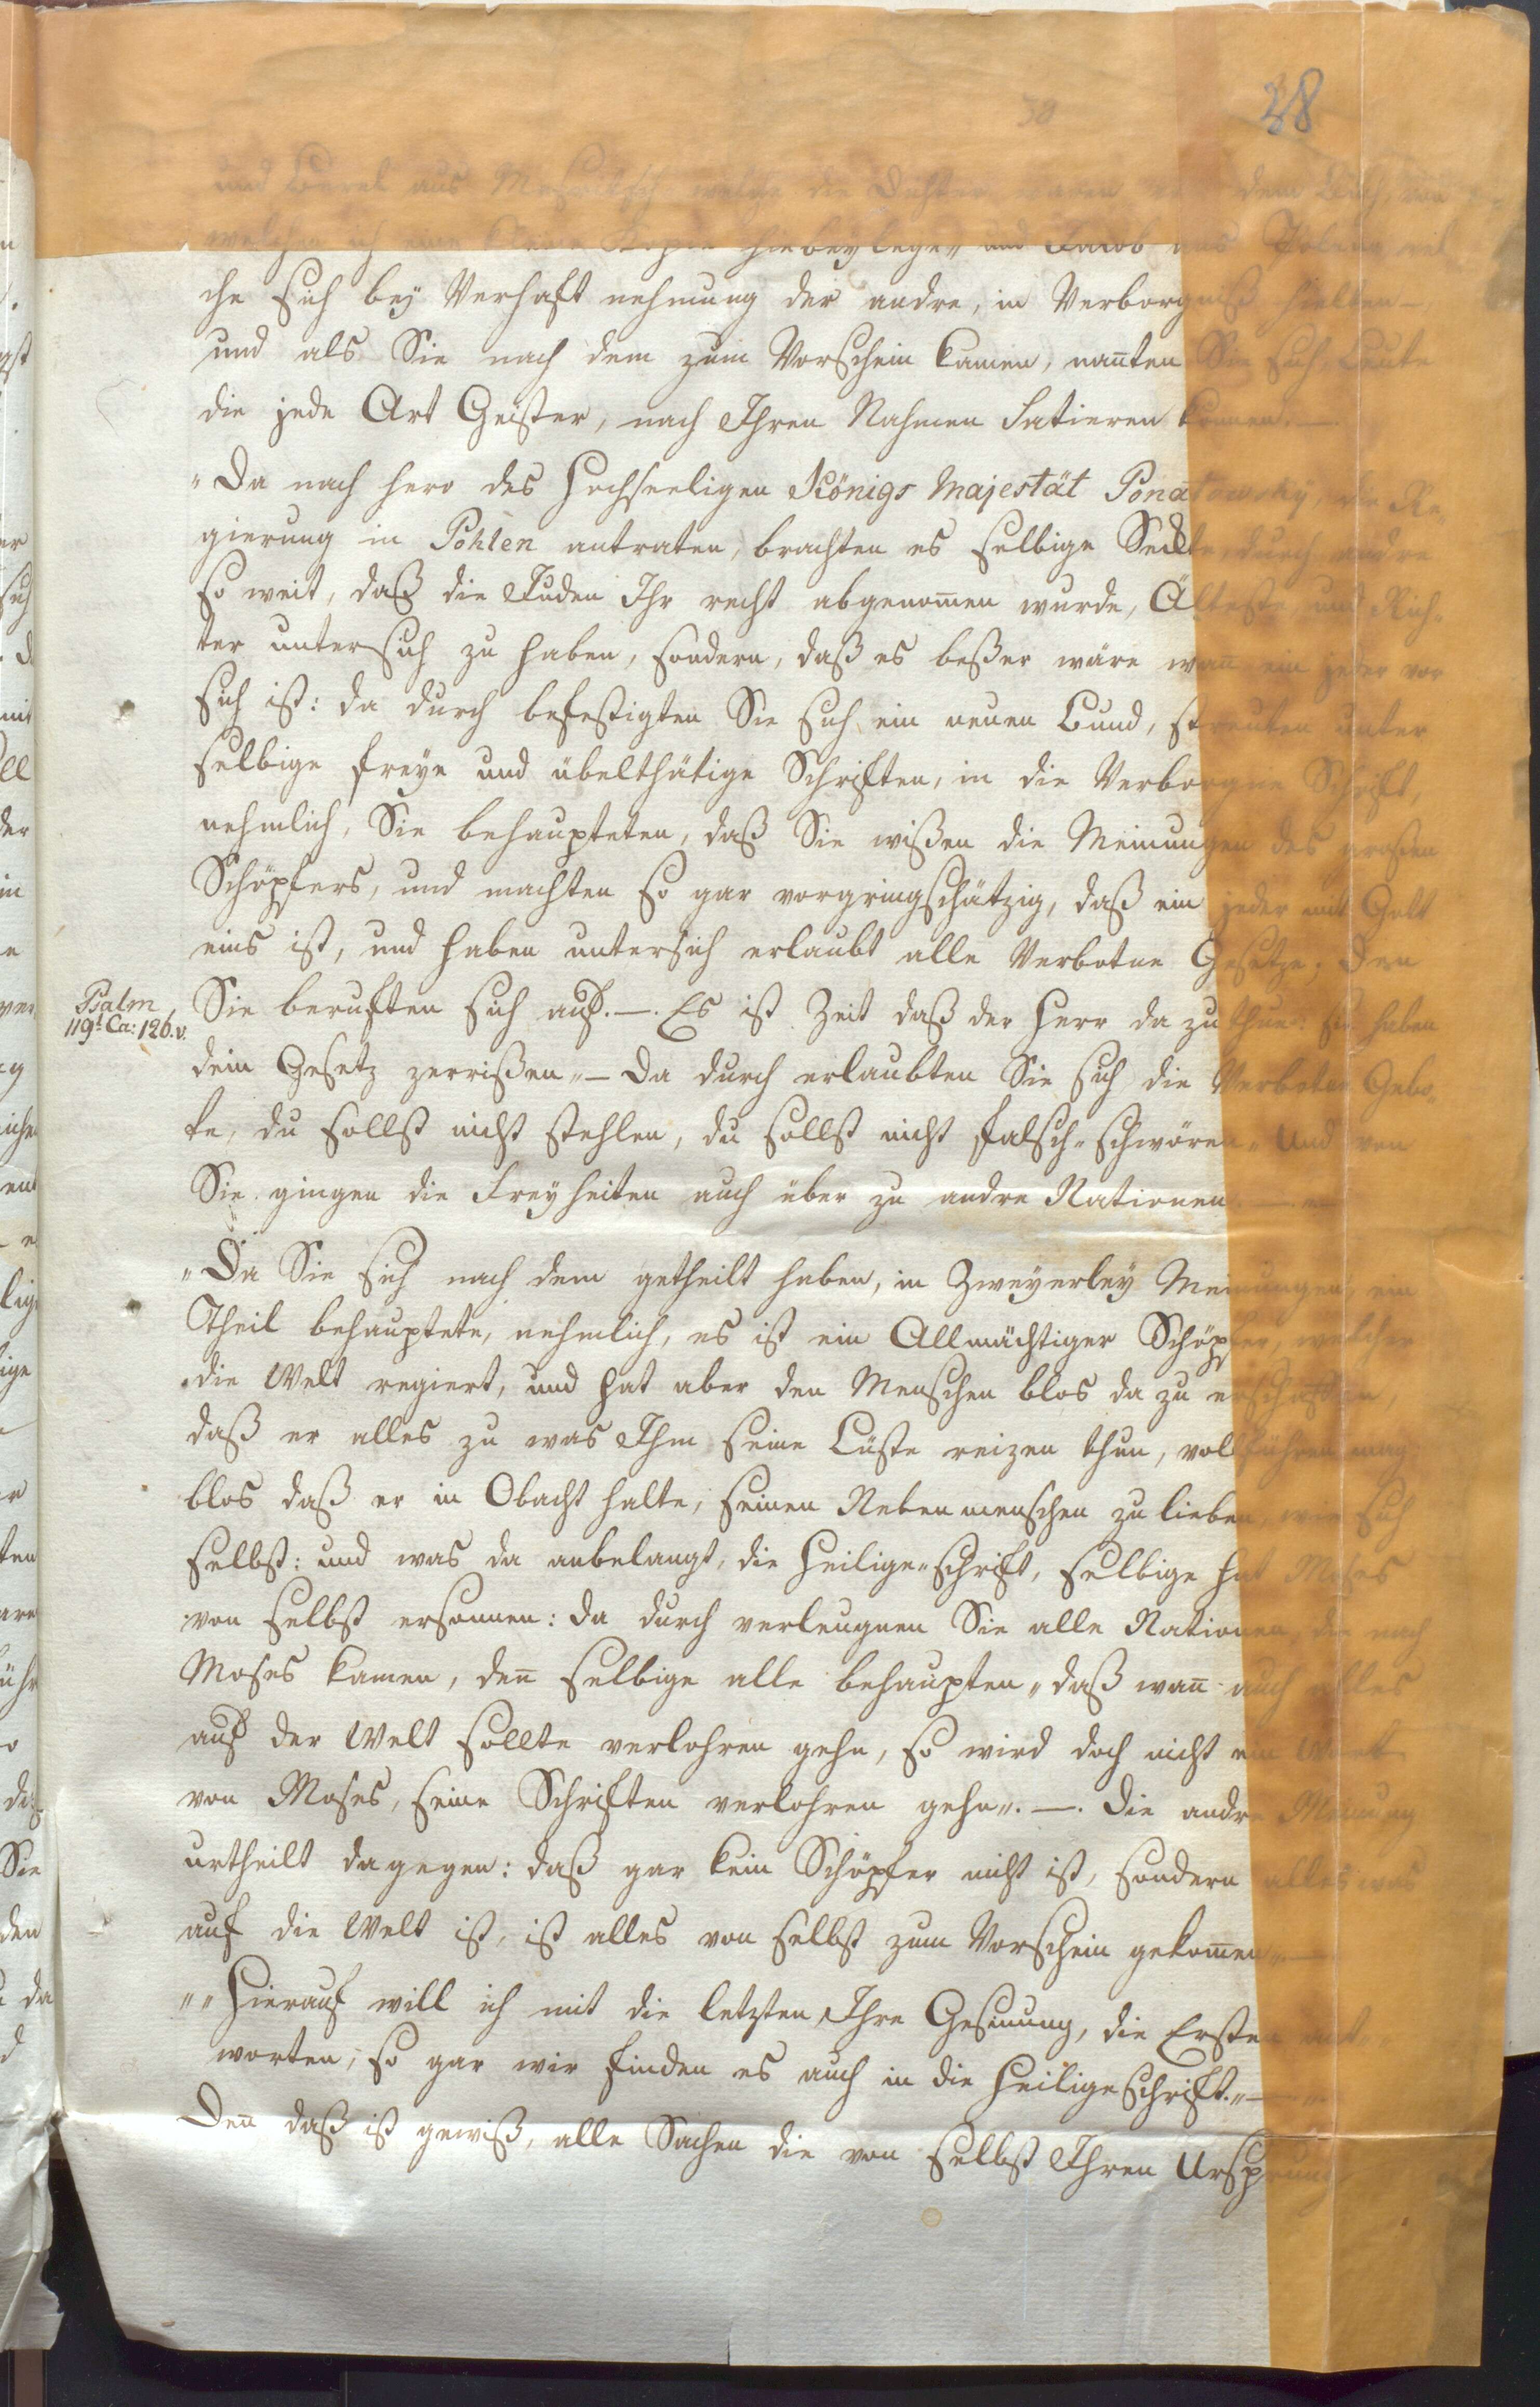 38
30
und Berek aus Mesritsch welche die Dichter waren von dem Buch, von
welchen ich eine hiebeylege" und Jacob aus Polona, wel
che sich bey Verhaft nehmung der andre, in Verborgniß hielten —
und als Sie nach dem zum Vorschein kamen, nañten Sie sich Leute
die jede Art Geister, nach Ihren Nahmen Citieren könen. —
"Da nach hero des Hochseeligen Königs Majestät Ponatowsky, die Re„
gierung in Pohlen antraten, brachten es selbige Seckte durch andre
so weit, daß die Juden Ihr recht abgenom̃en wurde, Älteste und Rich„
ter untersich zu haben, sondern, daß es beßer wäre wañ ein jeder vor
sich ist: da durch befestigten Sie sich ein neuen Bund, streuten unter
selbige freye und übelthätige Schriften, in die Verborgne Schrift,
nehmlich, Sie behaupteten, daß Sie wißen die Meinungen des großen
Schöpfers, und machten so gar vorgringschätzig, daß ein jeder mit Gott
eins ist, und haben untersich erlaubt alle Verbotne Gesetze; den
Psalm
119t Ca: 126. v.
Sie beruften sich auf. —. Es ist Zeit daß der Herr da zu thue: sie haben
dein Gesetz zerrißen" — Da durch erlaubten Sie sich die Verbotne Gebo„
te, du sollst nicht stehlen, du sollst nicht falsch-schwören" und von
Sie gingen die Freyheiten auch über zu andre Nationen. —
"Da Sie sich nach dem getheilt haben, in Zweyerley Meinungen, ein
Theil behauptete, nehmlich, es ist ein Allmächtiger Schöpfer, welcher
die Welt regiert, und hat aber den Menschen blos da zu erschaffen,
daß er alles zu was Ihm seine Lüste reizen thun, vollführen mag:
blos daß er in Obacht halte, seinen Neben menschen zu lieben, wie sich
selbst: und was da anbelangt, die Heilige-schrift, selbige hat Moses
von selbst ersonnen: da durch verleugnen Sie alle Nationen, die nach
Moses kamen, deñ selbige alle behaupten" daß wañ auch alles
auf der Welt sollte verlohren gehn, so wird doch nicht ein Wort
von Moses, seine Schriften verlohren gehn". —. Die andre Meinung
urtheilt dagegen: daß gar kein Schöpfer nicht ist, sondern alles was
auf die Welt ist, ist alles von selbst zum Vorschein gekom̃en" —
"" Hierauf will ich mit die letzten Ihre Gesinung, die Ersten ant„
worten, so gar wir finden es auch in die Heilige schrift." —
Deñ daß ist gewiß, alle Sachen die von selbst Ihren Ursprung